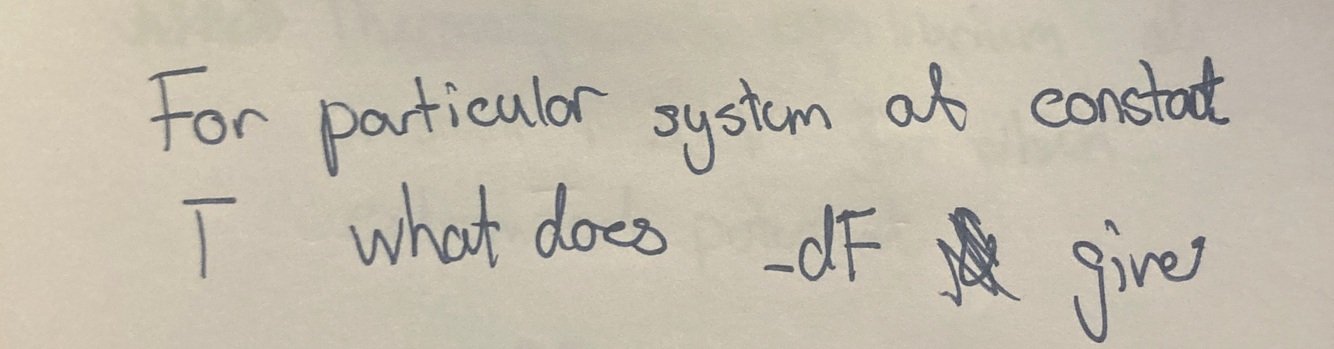 For particular system at constat
T what does -dF gives